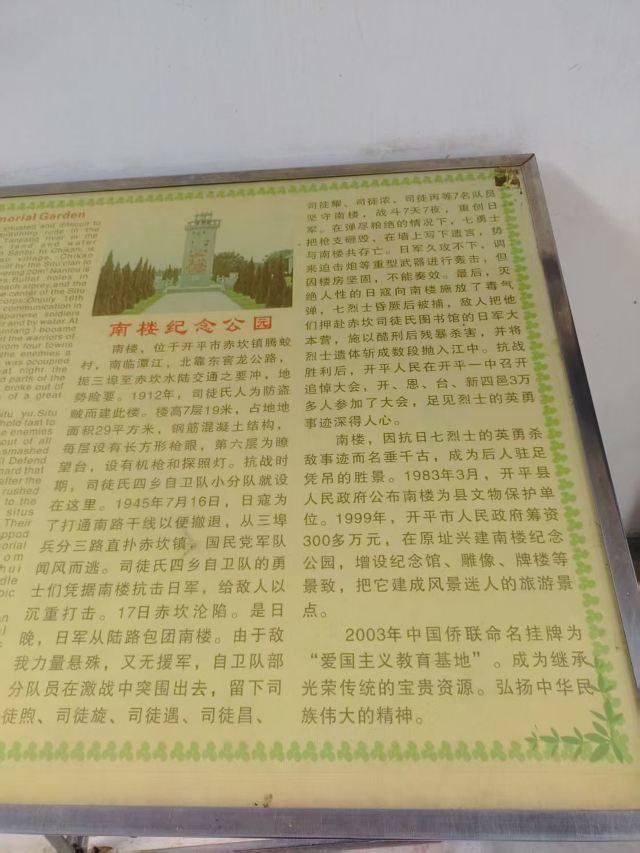 morial Garden
situated and difficult to
land and water
village, Chikan
holes in
corner of the Situ
communication in
Japanese soldiers
and by water. At
the warriors of
from four towns
the enemies a
was occupied
night the
and parts of the
broke out of
of a great
Situ yu. Situ
hold fast to
the enemies
out of all
smashed
Defend
hard that
after the
rushed
to the
situs
Their
南楼纪念公园
南楼，位于开平市赤坎镇腾蛟
村，南临潭江，北靠东窖龙公路，
扼三埠至赤坎水陆交通之要冲，地
势险要。1912年，司徒氏人为防盗
贼而建此楼。楼高7层19米，占地地
面积29平方米，钢筋混凝土结构，
每层设有长方形枪眼，第六层为瞭
望台，设有机枪和探照灯。抗战时
期，司徒氏四乡自卫队小分队就设
在这里。1945年7月16日，日寇为
了打通南路干线以便撤退，从三埠
兵分三路直扑赤坎镇，国民党军队
闻风而逃。司徒氏四乡自卫队的勇
士们凭据南楼抗击日军，给敌人以
沉重打击。17日赤坎沦陷。是日
晚，日军从陆路包团南楼。由于敌
我力量悬殊，又无援军，自卫队部
分队员在激战中突围出去，留下司
徒煦、司徒旋、司徒遇、司徒昌、
司徒耀、司徒浓、司徒丙等7名队员
坚守南楼，战斗7天7夜，重创日
军。在弹尽粮绝的情况下，七勇士
把枪支砸毁，在墙上写下遗言，势
与南楼共存亡。日军久攻不下，调
来迫击炮等重型武器进行轰击，但
因楼房坚固，不能奏效。最后，灭
绝人性的日寇向南楼施放了毒气
弹，七烈士昏厥后被捕，敌人把他
们押赴赤坎司徒氏图书馆的日军大
本营，施以酷刑后残暴杀害，并将
烈士遗体斩成数段抛入江中。抗战
胜利后，开平人民在开平一中召开
追悼大会，开、恩、台、新四邑3万
多人参加了大会，足见烈士的英勇
事迹深得人心。
南楼，因抗日七烈士的英勇杀
敌事迹而名垂千古，成为后人驻足
凭吊的胜景。1983年3月，开平县
人民政府公布南楼为县文物保护单
位。1999年，开平市人民政府筹资
300多万元，在原址兴建南楼纪念
公园，增设纪念馆、雕像、牌楼等
景致，把它建成风景迷人的旅游景
点。
2003年中国侨联命名挂牌为
“爱国主义教育基地”。成为继承
光荣传统的宝贵资源。弘扬中华民
族伟大的精神。